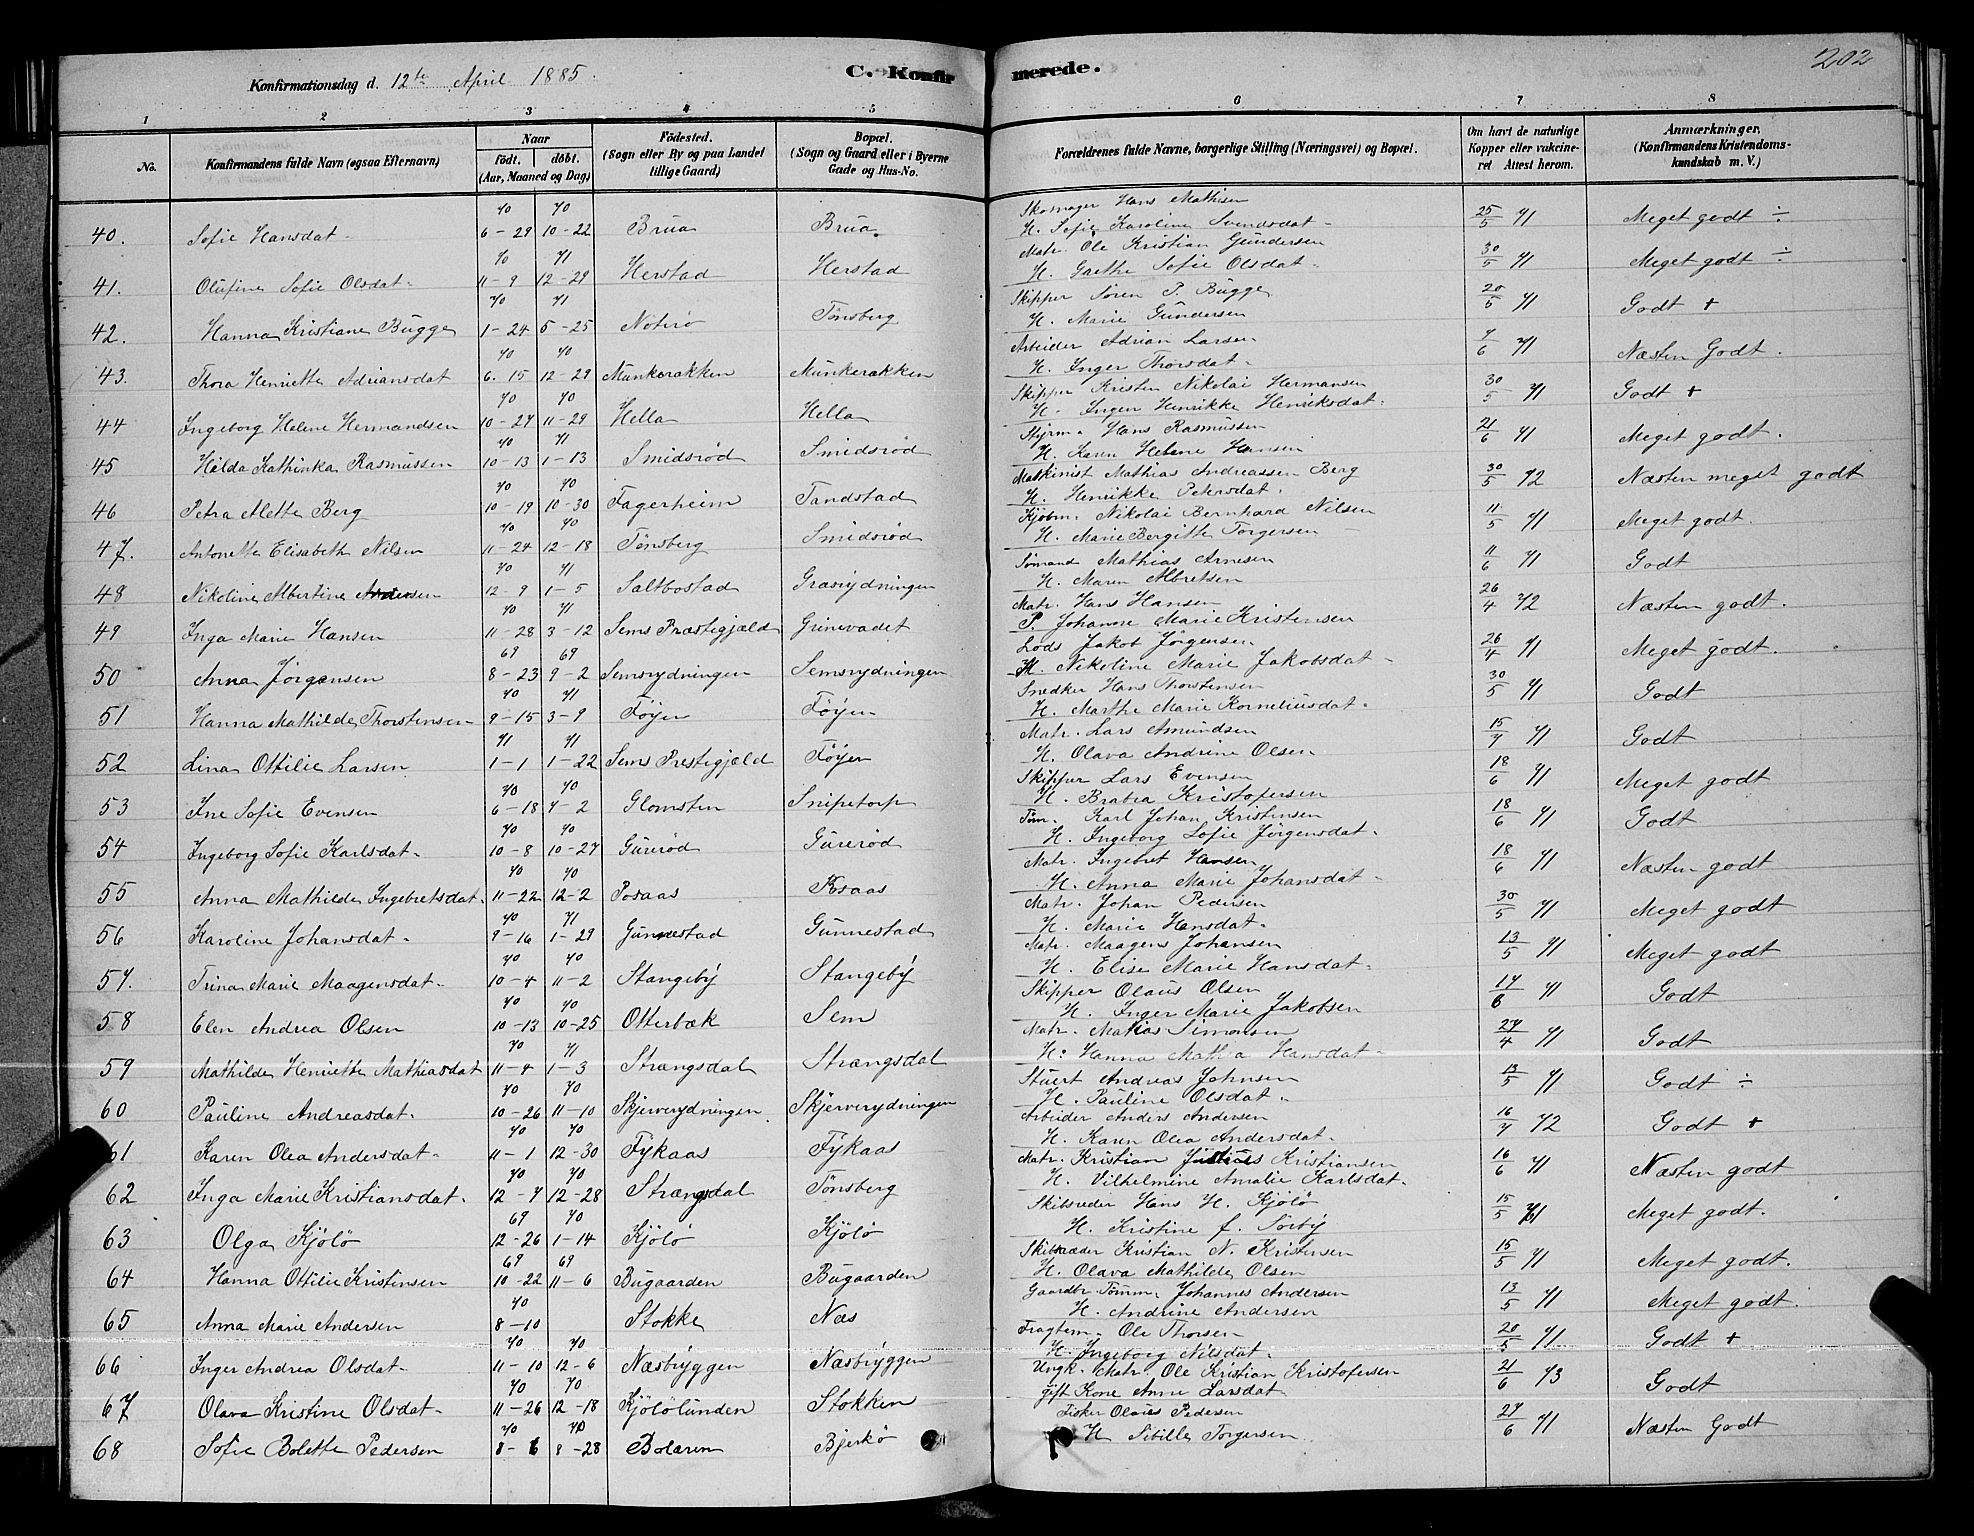 202
Konfirmationsdag d. 12te April 1885.
C. Konfirmerede.
1 2 3 4 5 6 7 8
No. Konfirmandens fulde Navn (ogsaa Efternavn) Naar født. døbt. (Aar, Maaned og Dag) Fødested. (Sogn eller By og paa Landet tillige Gaard) Bopæl. (Sogn og Gaard eller i Byerne Gade og Hus-No. Forældrenes fulde Navne, borgerlige Stilling (Næringsvei) og Bopæl. Om havt de naturlige Kopper eller vakcineret Attest herom. Anmærkninger. (Konfirmandens Kristendomskundskab m. V.)
70 70 Skomager Hans Mathisen
40. Sofie Hansdat- 6-29 10-22 Brua Brua. H. Sofie Karoline Svendsdat- 25/5 71 Meget godt ÷
70 71 Matr. Ole Kristian Gundersen
41. Olufine Sofie Olsdat- 11-9 12-29 Herstad Herstad H. Grethe Sofie Olsdat- 30/5 71 Meget godt ÷
70 71 Skipper Søren P. Bugge
42. Hanna Kristiane Bugge 1-24 5-25 Nøterø Tønsberg H. Marie Gundersen 20/5 71 Godt +
70 70 Arbeider Adrian Larsen
43. Thora Henriette Adriansdat 6.15 12-29 Munkerakken Munkerakken H. Inger Thorsdat- 7/6 71 Næsten Godt.
70 70 Skipper Kristen Nikolai Hermansen
44 Ingeborg Helene Hermandsen 10-27 11-29 Hella Hella H. Inger Henrikke Henriksdat. 30/5 71 Godt +
70 71 Styrm. Hans Rasmussen
45 Hilda Kathinka Rasmussen 10-13 1-13 Smidsrød Smidsrød H. Karen Helene Hansen 21/6 71 Meget godt.
70 70 Maskinist Mathias Andreassen Berg
46 Petra Mette Berg 10-19 10-30 Fagerheim Tandstad H. Henrikke Petersdat. 30/5 72 Næsten meget godt
70 70 Kjøbm. Nikolai Bernhard Nilsen
47. Antonette Elisabeth Nilsen 11-24 12-18 Tønsberg Smidsrød H. Marie Bergitte Torgersen 11/5 71 Meget godt.
70 71 Sømand Mathias Arnesen
48 Nikoline Albertine 12-9 1-5 Saltbostad Grasrydningen H. Maren Albretsen 11/6 71 Godt
70 71 Matr. Hans Hansen
49 Inga Marie Hansen 11-28 3-12 Sems Præstigjæld Grinevadet P. Johanne Marie Kristensen 26/4 72 Næsten godt.
69 69 Lods Jakob Jørgensen
50 Anna Jørgensen 8-23 9-2 Semsrydningen Semsrydningen H. Nikoline Marie Jakobsdat- 26/4 71 Meget godt.
70 71 Snedker Hans Thorstensen
51 Hanna Mathilde Thorstensen 9-15 3-9 Føyen Føyen H. Marthe Marie Korneliusdat- 30/5 71 Godt
71 71 Matr. Lars Amundsen
52 Lina Ottilie Larsen 1-1 1-22 Sems Prestigjæld Føyen H. Olava Andrine Olsen 15/7 71 Godt
70 70 Skipper Lars Evensen
53 Ine Sofie Evensen 6-18 7-2 Glomsten Snipetorp H. Brabra Kristofersen 18/6 71 Meget godt
70 70 Tøm. Karl Johan Kristinsen
54 Ingeborg Sofie Karlsdat- 10-8 10-27 Gurerød Gurerød H. Ingeborg Sofie Jørgensdat- 18/6 71 Godt
70 70 Matr. Ingebret Hansen
55 Anna Mathilde Ingebretsdat. 11-22 12-2 H. Anna Marie Johansdat- 18/6 71 Næsten godt
70 71 Matr. Johan Pedersen
56 Karoline Johansdat- 9-16 1-29 Gunnestad Gunnestad H. Marie Hansdat- 30/5 71 Meget godt
70 70 Matr. Maagens Johansen
57. Trina Marie Maagensdat- 10-4 11-2 Stangeby Stangeby H. Elise Marie Hansdat- 13/5 71 Meget godt
70 70 Skipper Olaus Olsen
58 Elen Andrea Olsen 10-13 10-25 Otterbæk Sem H. Inger Marie Jakobsen 17/6 71 Godt
70 71 Matr. Mathias Simonsen
59 Mathilde Henriette Mathiasdat 11-4 1-3 Strængsdal Strængsdal H. Hanna Mathea Hansdat- 27/4 71 Godt
70 70 Stuert Andreas Johnsen
60 Pauline Andreasdat- 10-26 11-10 Skjerverydningen Skjerverydningen H. Pauline Olsdat- 13/5 71 Godt ÷
70 70 Arbeider Anders Andersen
61 Karen Olea Andersdat- 11-1 12-30 Fykaas Fykaas H. Karen Olea Andersdat- 16/7 72 Godt +
70 70 Matr. Kristian Julius Kristiansen
62 Inga Marie Kristiansdat- 12-7 12-28 Strængsdal Tønsberg H. Vilhelmine Amalie Karlsdat- 16/6 71 Næsten godt
69 70 Skibsreder Hans H. Kjølø
63 Olga Kjølø 12-26 1-14 Kjølø Kjølø H. Kristine f. Sørby 15/5 71 Meget godt.
69 69 Skibsræder Kristian N. Kristensen
64 Hanna Ottilie Kristinsen 10-22 11-6 Bugaarden Bugaarden H. Olava Mathilde Olsen 15/5 71 Meget godt.
70 Gaardbr. Tømm. Johannes Andersen
65 Anna Marie Andersen 8-10 Stokke Næs H. Andrine Andersen 13/5 71 Meget godt.
70 70 Fragtem. Ole Thorsen
66 Inger Andrea Olsdat- 11-10 12-6 Næsbryggen Næsbryggen H. Ingeborg Nilsdat- 20/5 71 Godt +
70 70 Ungk. Matr. Ole Kristian Kristofersen
67 Olava Kristine Olsdat- 11-26 12-18 Kjølølunden Stokken gift Kone Anne Larsdat 21/6 73 Godt
70 70 Fisker Olaus Pedersen
68 Sofie Bolette Pedersen 8-6 8-28 Bolæren Bjerkø H Sibille Torgersen 27/6 71 Næsten Godt